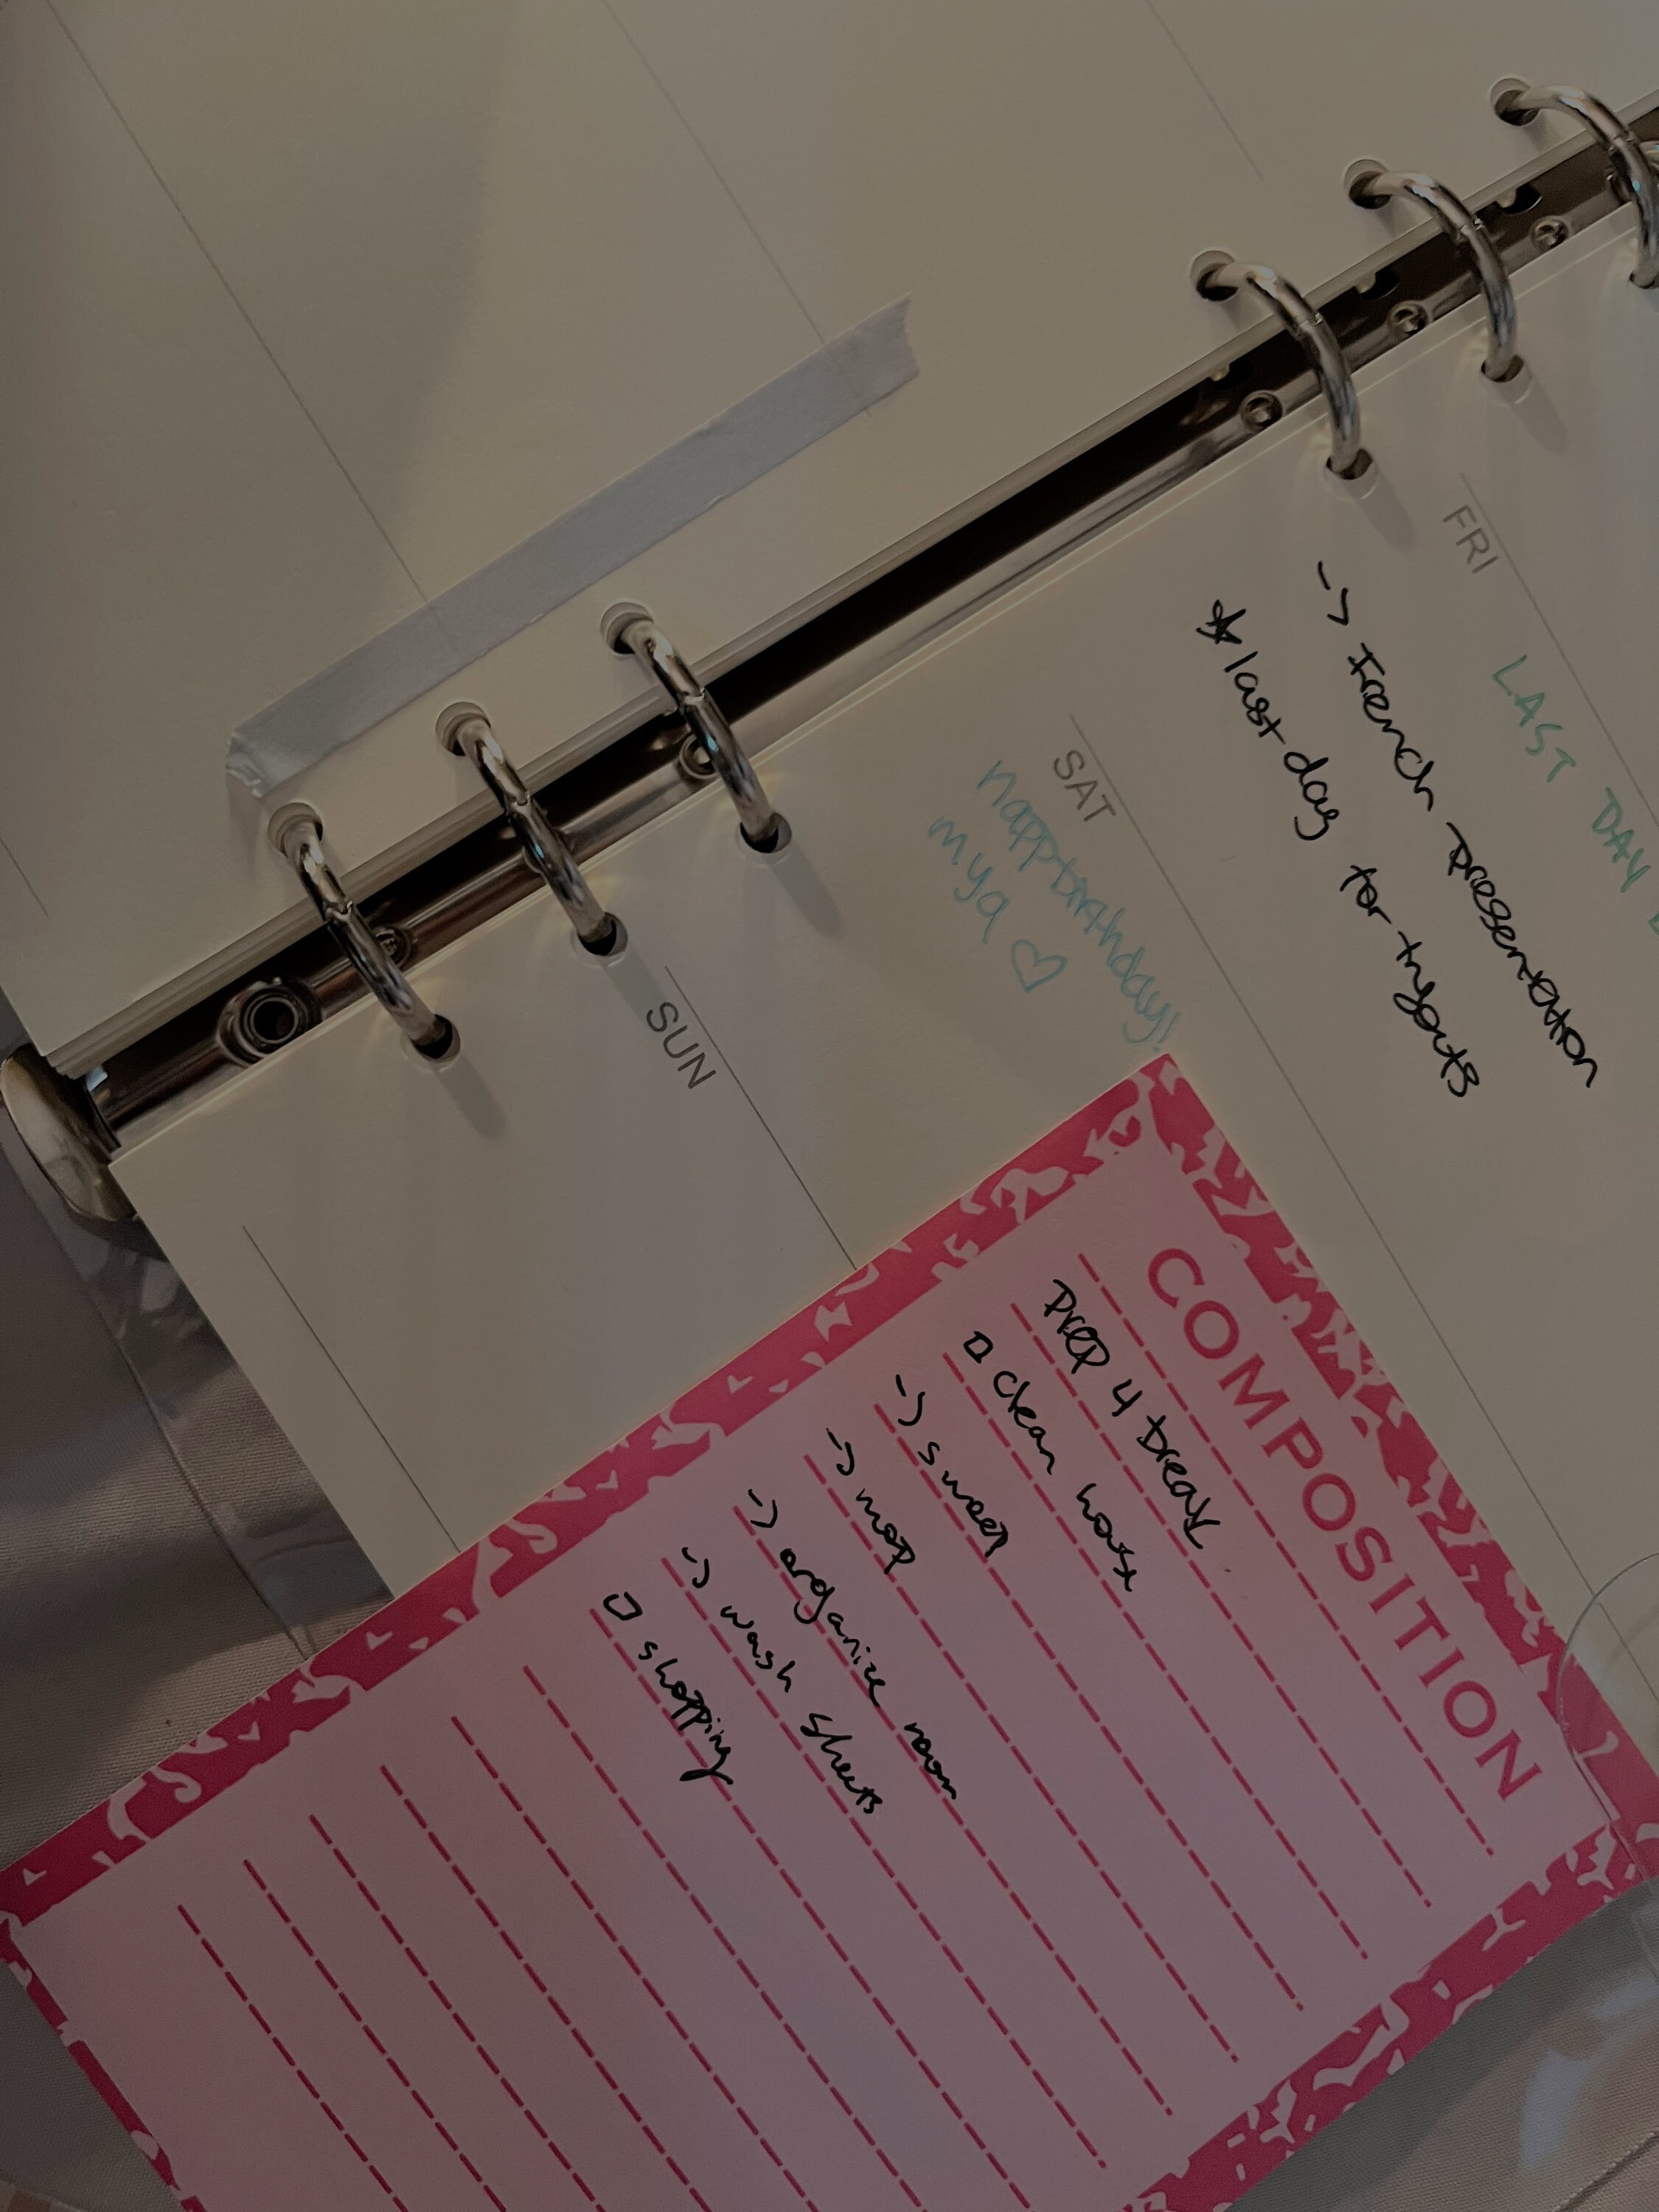 FRI
LAST DAY
-> French presentation
☆ last day for tryouts
SAT
happy birthday!
mya ♡
SUN
COMPOSITION
prep 4 break
□ clean house
-> sweep
-> mop
-> organize room
-> wash sheets
□ shopping